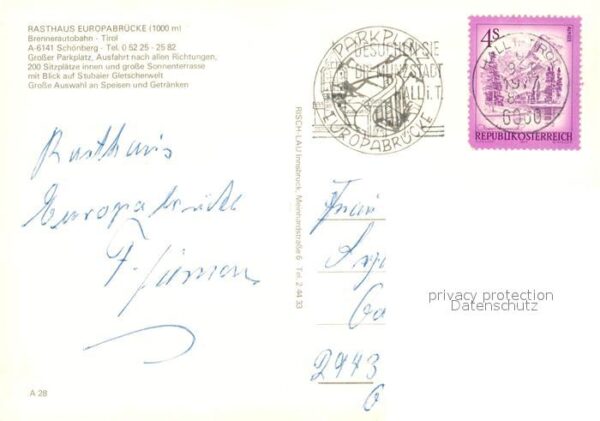 RASTHAUS EUROPABRÜCKE (1000 m)
Brennerautobahn - Tirol
A-6141 Schönberg - Tel. 0 52 25 - 25 82
Großer Parkplatz, Ausfahrt nach allen Richtungen,
200 Sitzplätze innen und große Sonnenterrasse
mit Blick auf Stubaier Gletscherwelt
Große Auswahl an Speisen und Getränken
PARKPLATZ
EUROPABRÜCKE
BESUCHEN SIE
HALL i. T.
4S
REPUBLIK ÖSTERREICH
HALL i. TIROL
1977
6060
RISCH-LAU Innsbruck, Meinhardstraße 6 Tel. 2 44 33
Rasthaus
Europabrücke
2443
privacy protection
Datenschutz
A 28